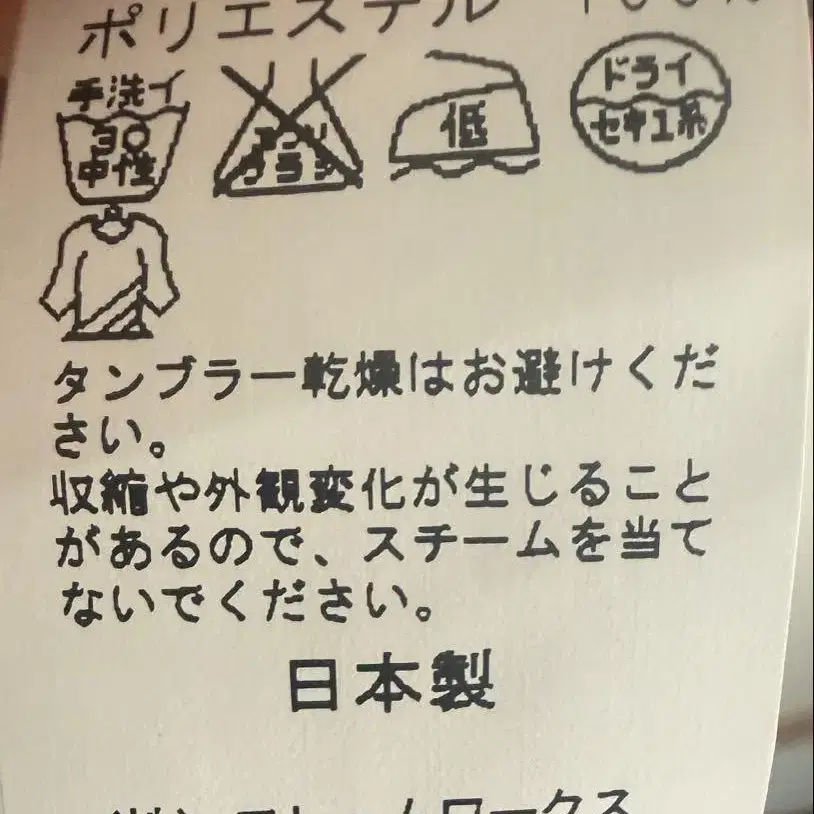 ポリエステル 100%
手洗イ
30
中性
エンソ
サラシ
低
ドライ
セキユ系
タンブラー乾燥はお避けくだ
さい。
収縮や外観変化が生じること
があるので、スチームを当て
ないでください。
日本製